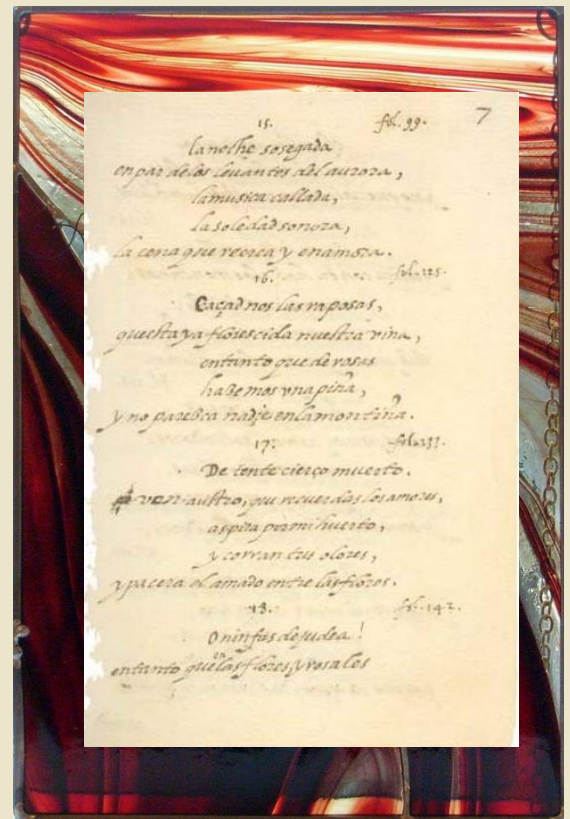 7
15. fol. 99.
la noche sosegada
en par delos levantes del aurora,
la musica callada,
la soledad sonora,
la cena que recrea y enamora.
16. fol. 125.
Caçad nos las raposas,
questa ya florescida nuestra viña,
entanto que de rosas
hazemos vna piña,
y no paresca nadie enla montiña.
17. fol. 133.
De tente cierço muerto.
ven austro, que recuerdas los amores,
aspira por mi huerto,
y corran tus olores,
y pacera el amado entre las flores.
18. fol. 142.
O ninfas de judea!
entanto que en las flores, y rosales